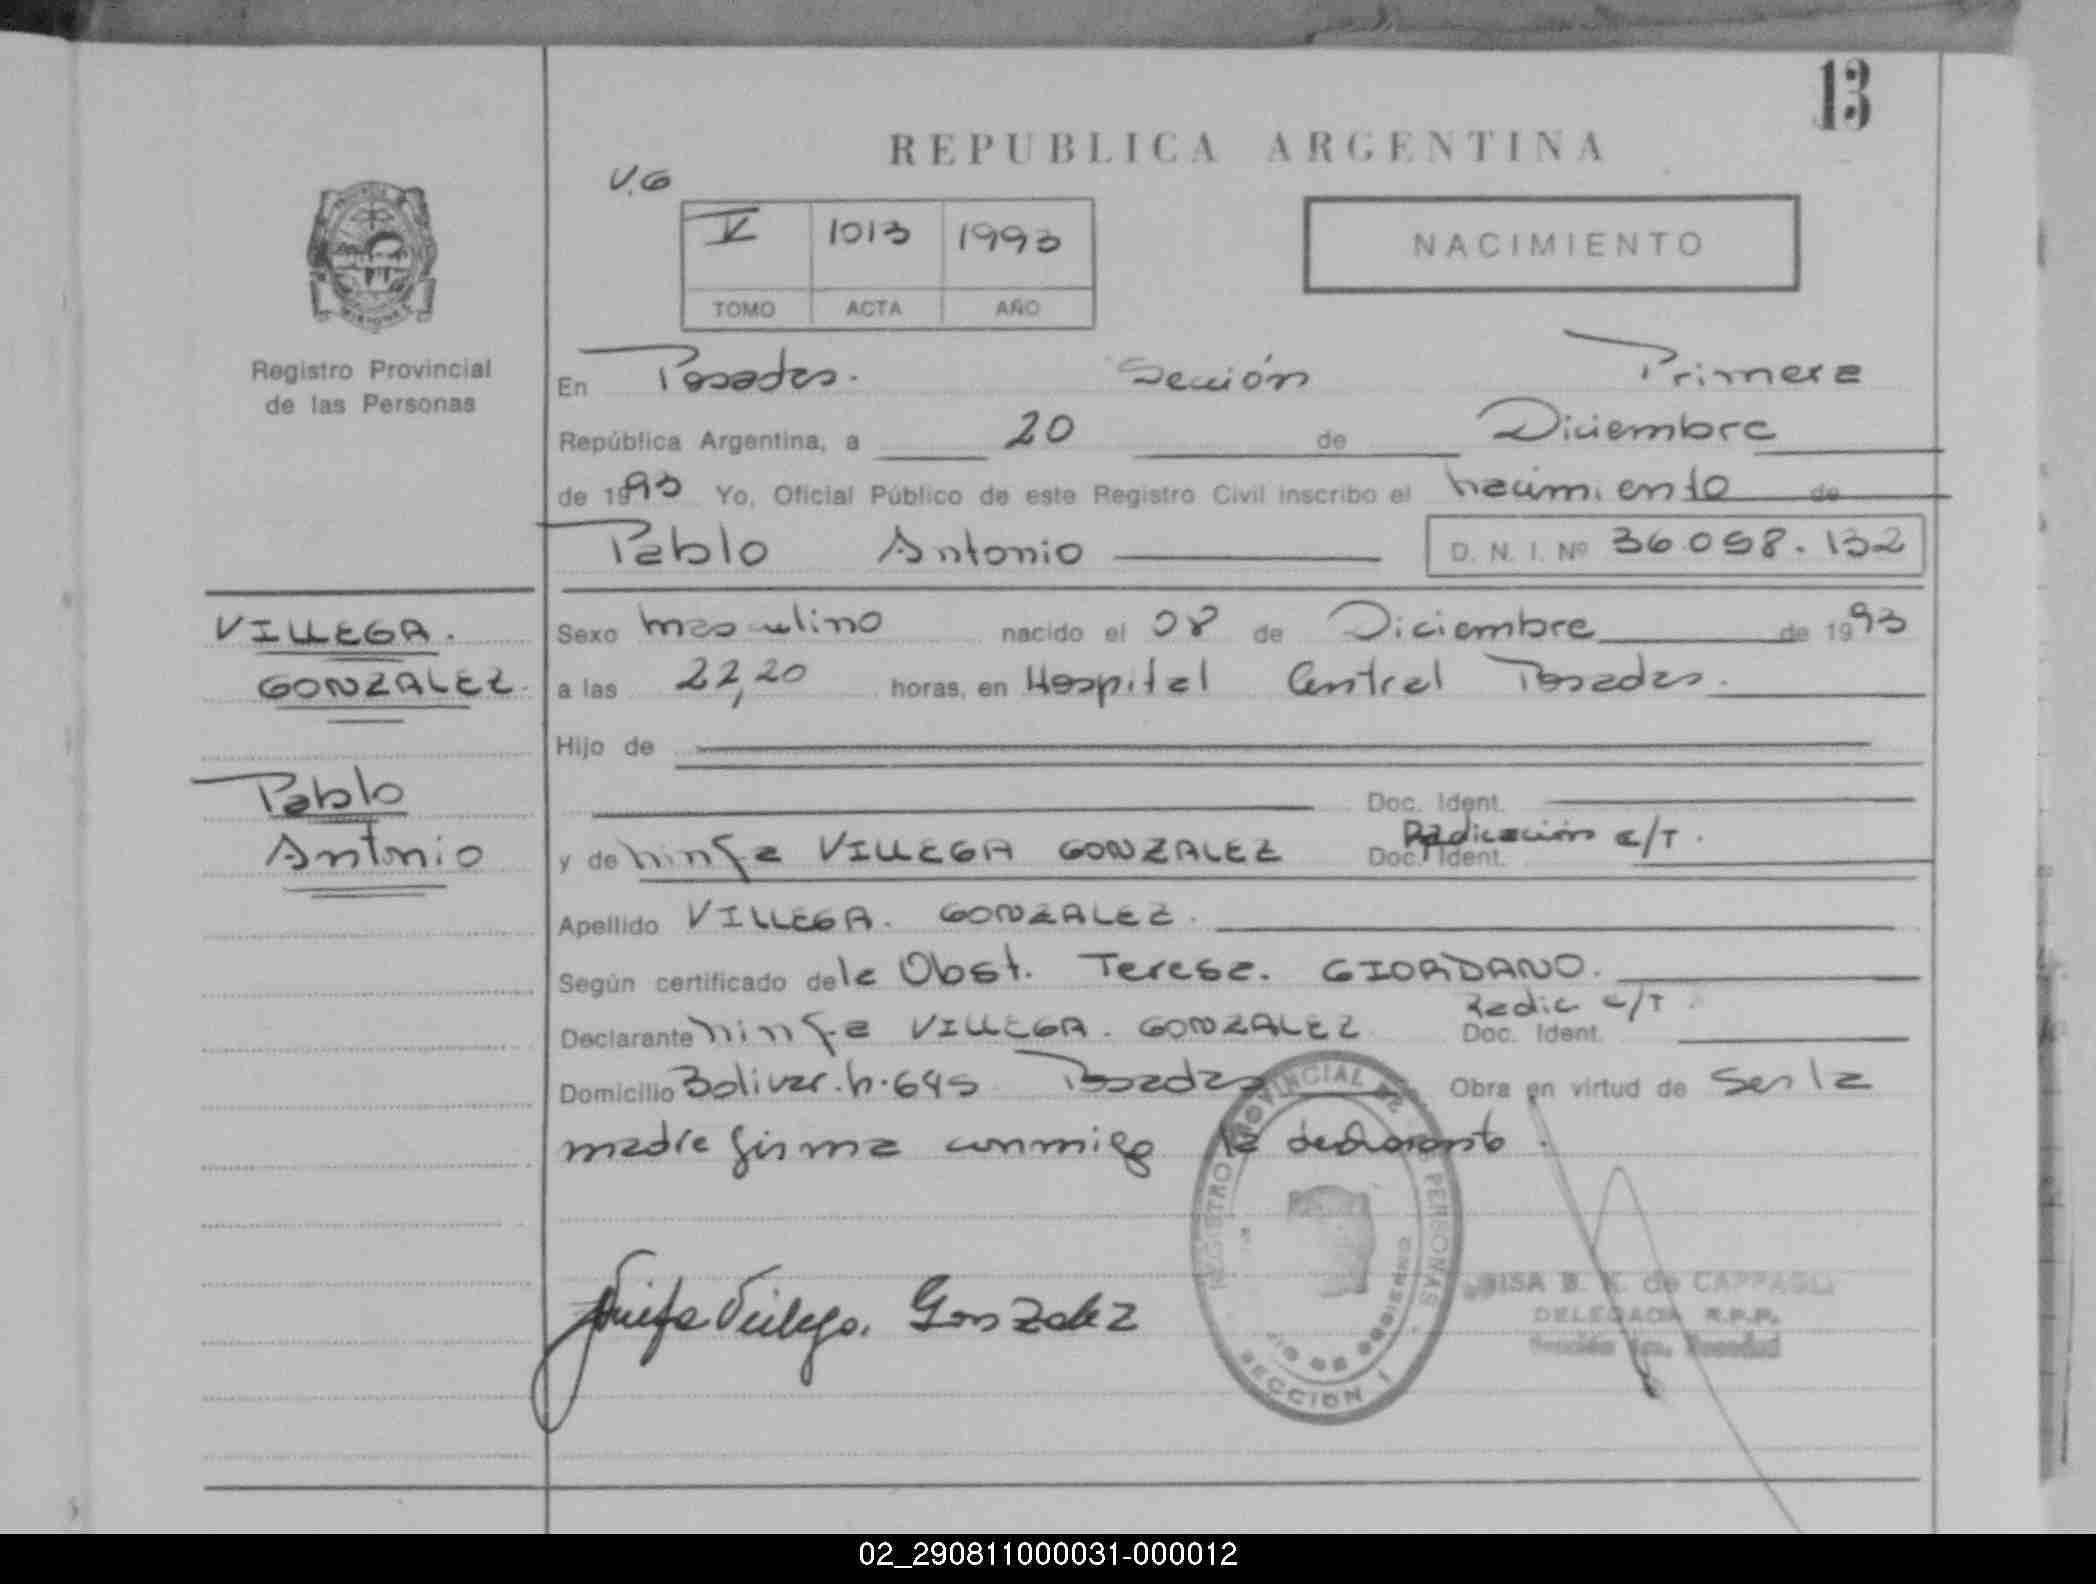 13
REPUBLICA ARGENTINA
V.G
V 1013 1993
TOMO ACTA AÑO
NACIMIENTO
Registro Provincial
de las Personas
En Posadas. Sección Primera
República Argentina, a 20 de Diciembre
de 1993 Yo, Oficial Público de este Registro Civil inscribo el nacimiento de
Pablo Antonio D. N. I. Nº 36.098.132
VILLEGA.
GONZALEZ.
Pablo
Antonio
Sexo masculino nacido el 08 de Diciembre de 1993
a las 22,20 horas, en Hospital Central Posadas.
Hijo de
Doc. Ident.
y de Ninfa VILLEGA GONZALEZ Doc. Ident. Radicación e/T.
Apellido VILLEGA. GONZALEZ.
Según certificado de la Obst. Teresa. GIORDANO.
Declarante Ninfa VILLEGA. GONZALEZ Doc. Ident. Radic e/T.
Domicilio Bolivar. N. 645 Posadas Obra en virtud de Ser la
madre firma conmigo la declarante.
REGISTRO PROVINCIAL DE LAS PERSONAS
SECCION I
Ninfa Villega. Gonzalez
B. K. de CAPPAGLI
DELEGADA R.P.P.
02_290811000031-000012